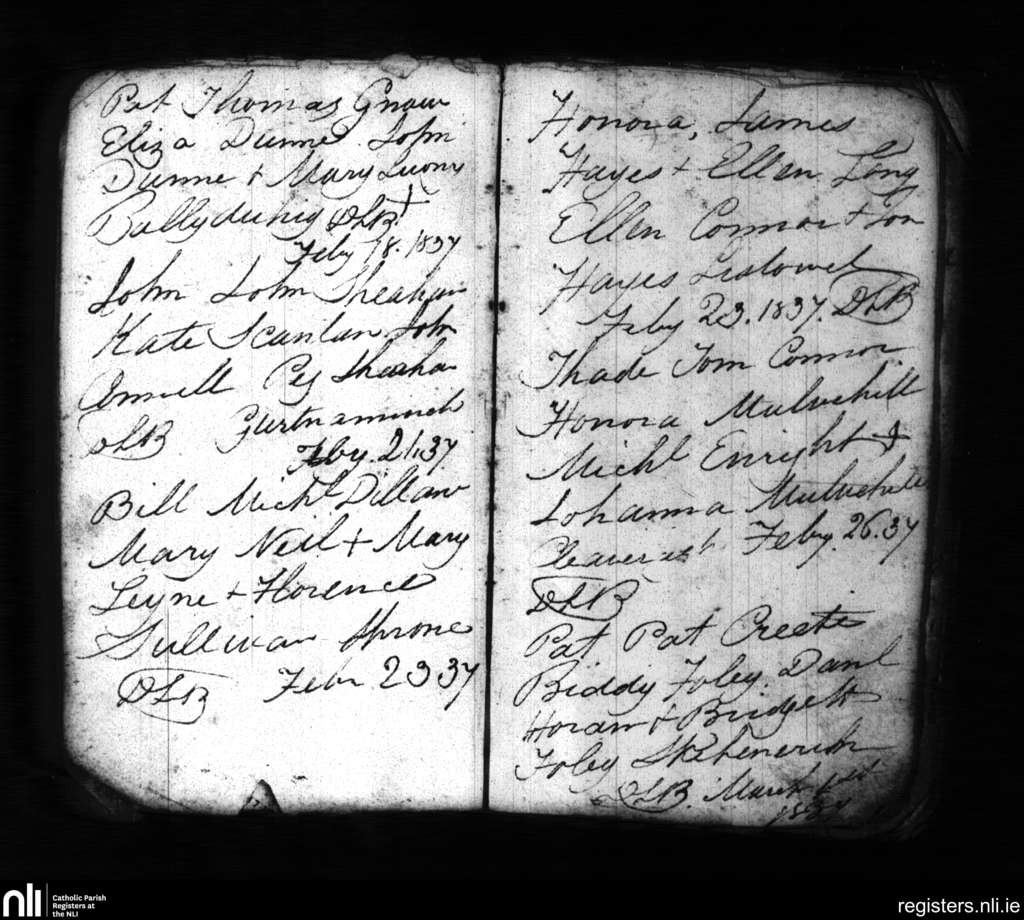 Pat Thomas Gnaw
Eliza Dunne John
Dunne + Mary Leony
Ballyduhig DLB
Feby 18. 1837
John John Sheahan
Kate Scanlan John
Connell Peg Sheaha
DLB Gurtnaminch
Feby. 21, 37
Bill Michl Dillane
Mary Neil + Mary
Leyne + Florence
Sullivan Shrone
DLB Febr 23 37
Honora, James
Hayes + Ellen Long
Ellen Connor + Jon
Hayes Listowel
Feby 23. 1837. DLB
Thade Tom Connor
Honora Mulvehill
Michl Enright +
Johanna Mulvehill
Feby. 26. 37
DLB
Pat Pat Creete
Biddy Foley Danl
Horan + Bridgett
Foley Skehenerin
DLB March 1st
1837
nli
Catholic Parish
Registers at
the NLI
registers.nli.ie